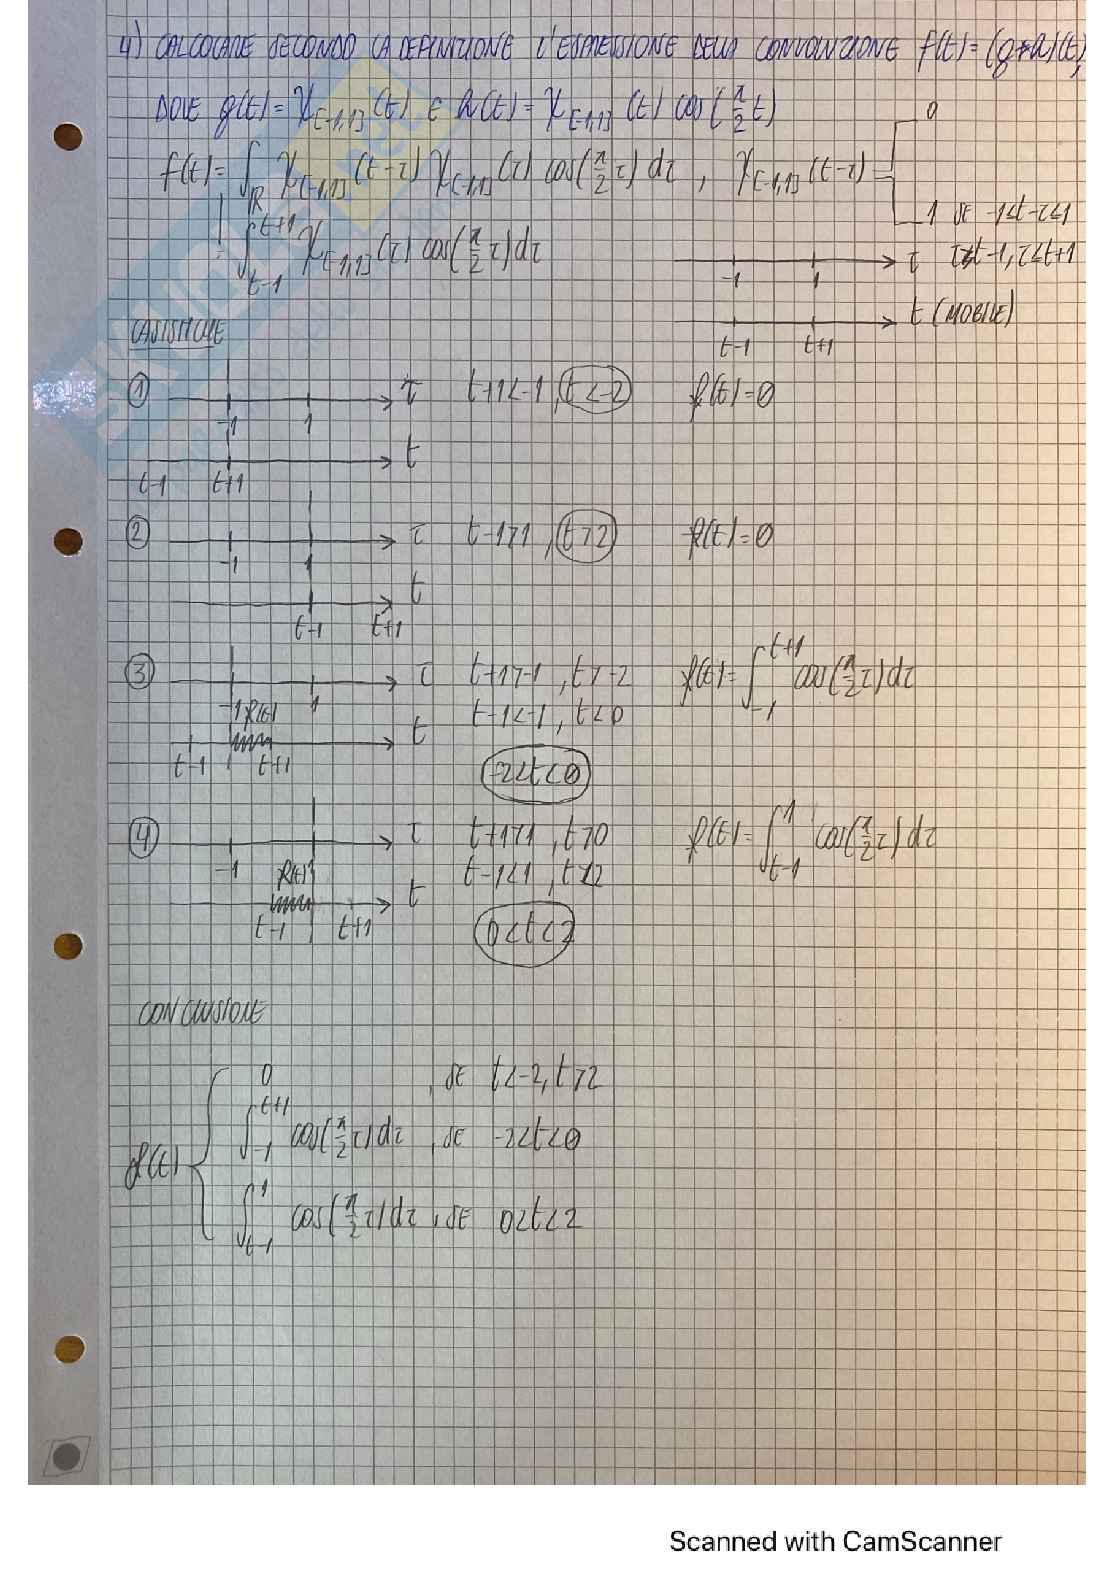 4) CALCOLARE SECONDO LA DEFINIZIONE L'ESPRESSIONE DELLA CONVOLUZIONE f(t)=(g*h)(t),
DOVE g(t)=χ[-1,1](t) E h(t)=χ[-1,1](t) cos(π/2 t)
f(t)=∫R χ[-1,1](t-τ) χ[-1,1](τ) cos(π/2 τ) dτ , χ[-1,1](t-τ)
0
1 SE -1<t-τ<1
τ>t-1, τ<t+1
=∫t-1^t+1 χ[-1,1](τ) cos(π/2 τ) dτ
-1 1 τ
t-1 t+1 t (MOBILE)
CASISTICHE
① τ t+1<-1, t<-2 f(t)=0
-1 1
t
t-1 t+1
② τ t-1>1, t>2 f(t)=0
-1 1
t
t-1 t+1
③ τ t+1>-1, t>-2 f(t)=∫-1^t+1 cos(π/2 τ) dτ
-1 f(t) 1 t-1<-1, t<0
t
t-1 t+1 -2<t<0
④ τ t+1>1, t>0 f(t)=∫t-1^1 cos(π/2 τ) dτ
-1 f(t) t-1<1, t<2
t
t-1 t+1 0<t<2
CONCLUSIONE
0 , SE t<-2, t>2
f(t) ∫-1^t+1 cos(π/2 τ) dτ , SE -2<t<0
∫t-1^1 cos(π/2 τ) dτ , SE 0<t<2
Scanned with CamScanner